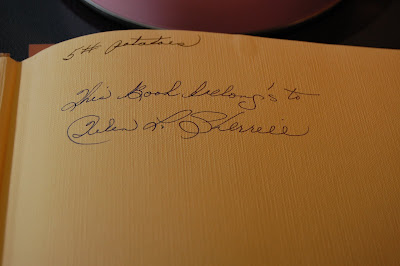 5# potatoes
This Book belong's to
L. Sherrell